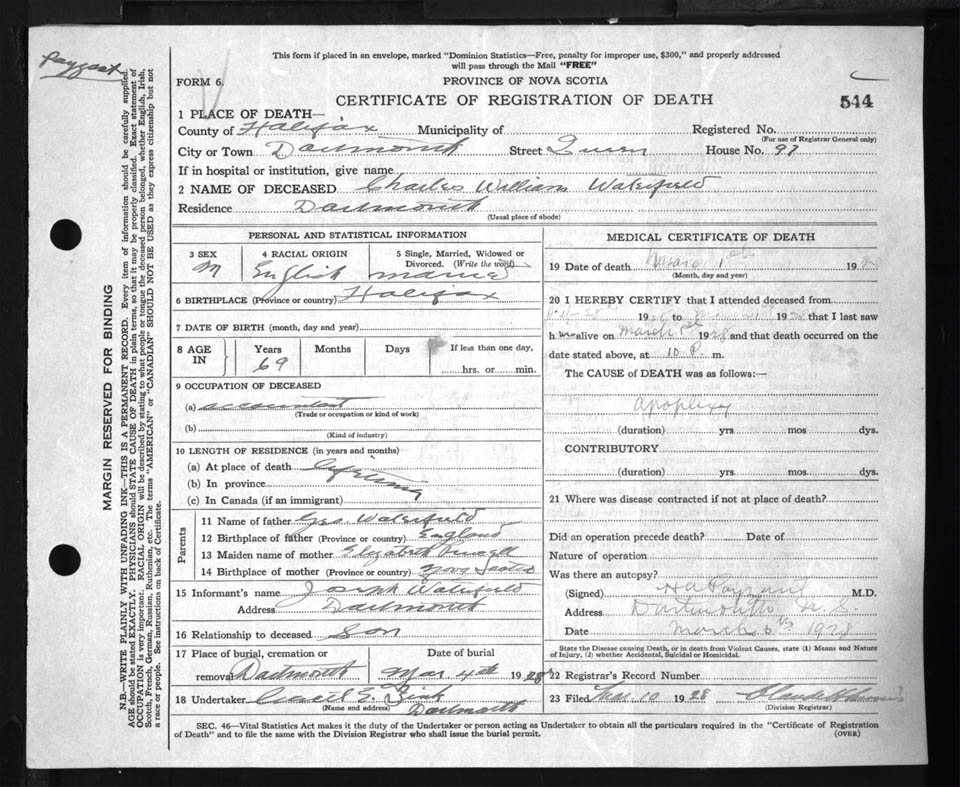 This form if placed in an envelope, marked "Dominion Statistics—Free, penalty for improper use, $300," and properly addressed
will pass through the Mail "FREE"
FORM 6.
PROVINCE OF NOVA SCOTIA
CERTIFICATE OF REGISTRATION OF DEATH
544
1 PLACE OF DEATH—
County of Halifax Municipality of Registered No.
(For use of Registrar General only)
City or Town Dartmouth Street Queen House No. 97
If in hospital or institution, give name
2 NAME OF DECEASED Charles William Waterfield
Residence Dartmouth
(Usual place of abode)
PERSONAL AND STATISTICAL INFORMATION
3 SEX M
4 RACIAL ORIGIN English
5 Single, Married, Widowed or
Divorced. (Write the word) married
6 BIRTHPLACE (Province or country) Halifax
7 DATE OF BIRTH (month, day and year)
8 AGE IN Years 69 Months Days If less than one day,
hrs. or min.
9 OCCUPATION OF DECEASED
(a) accountant
(Trade or occupation or kind of work)
(b)
(Kind of industry)
10 LENGTH OF RESIDENCE (in years and months)
(a) At place of death Lifetime
(b) In province
(c) In Canada (if an immigrant)
Parents
11 Name of father Geo. Waterfield
12 Birthplace of father (Province or country) England
13 Maiden name of mother Elizabeth
14 Birthplace of mother (Province or country) Nova Scotia
15 Informant's name Joseph Waterfield
Address Dartmouth
16 Relationship to deceased son
17 Place of burial, cremation or
removal Dartmouth
Date of burial
Mar 4th 1928
18 Undertaker E. Zink
(Name and address) Dartmouth
MEDICAL CERTIFICATE OF DEATH
19 Date of death March 1st 192
(Month, day and year)
20 I HEREBY CERTIFY that I attended deceased from
Feb 28 19 to 19 that I last saw
h im alive on March 1st 1928 and that death occurred on the
date stated above, at 10 P m.
The CAUSE of DEATH was as follows:—
apoplexy
(duration) yrs mos dys.
CONTRIBUTORY
(duration) yrs mos dys.
21 Where was disease contracted if not at place of death?
Did an operation precede death? Date of
Nature of operation
Was there an autopsy?
(Signed) H A Payzant M.D.
Address Dartmouth N. S.
Date March 1928
State the Disease causing Death, or in death from Violent Causes, state (1) Means and Nature
of Injury, (2) whether Accidental, Suicidal or Homicidal.
22 Registrar's Record Number
23 Filed Mar. 10 1928
(Division Registrar)
SEC. 46—Vital Statistics Act makes it the duty of the Undertaker or person acting as Undertaker to obtain all the particulars required in the "Certificate of Registration
of Death" and to file the same with the Division Registrar who shall issue the burial permit.
(OVER)
Payzant
MARGIN RESERVED FOR BINDING
N.B.—WRITE PLAINLY WITH UNFADING INK—THIS IS A PERMANENT RECORD. Every item of information should be carefully supplied.
AGE should be stated EXACTLY. PHYSICIANS should STATE CAUSE OF DEATH in plain terms, so that it may be properly classified. Exact statement of
OCCUPATION is very important. RACIAL ORIGIN will be described by stating to what people or tongue the deceased person belonged, whether English, Irish,
Scotch, French, German, Russian, Ruthenian, etc. The terms "AMERICAN" or "CANADIAN" SHOULD NOT BE USED as they express citizenship but not
a race or people. See instructions on back of Certificate.